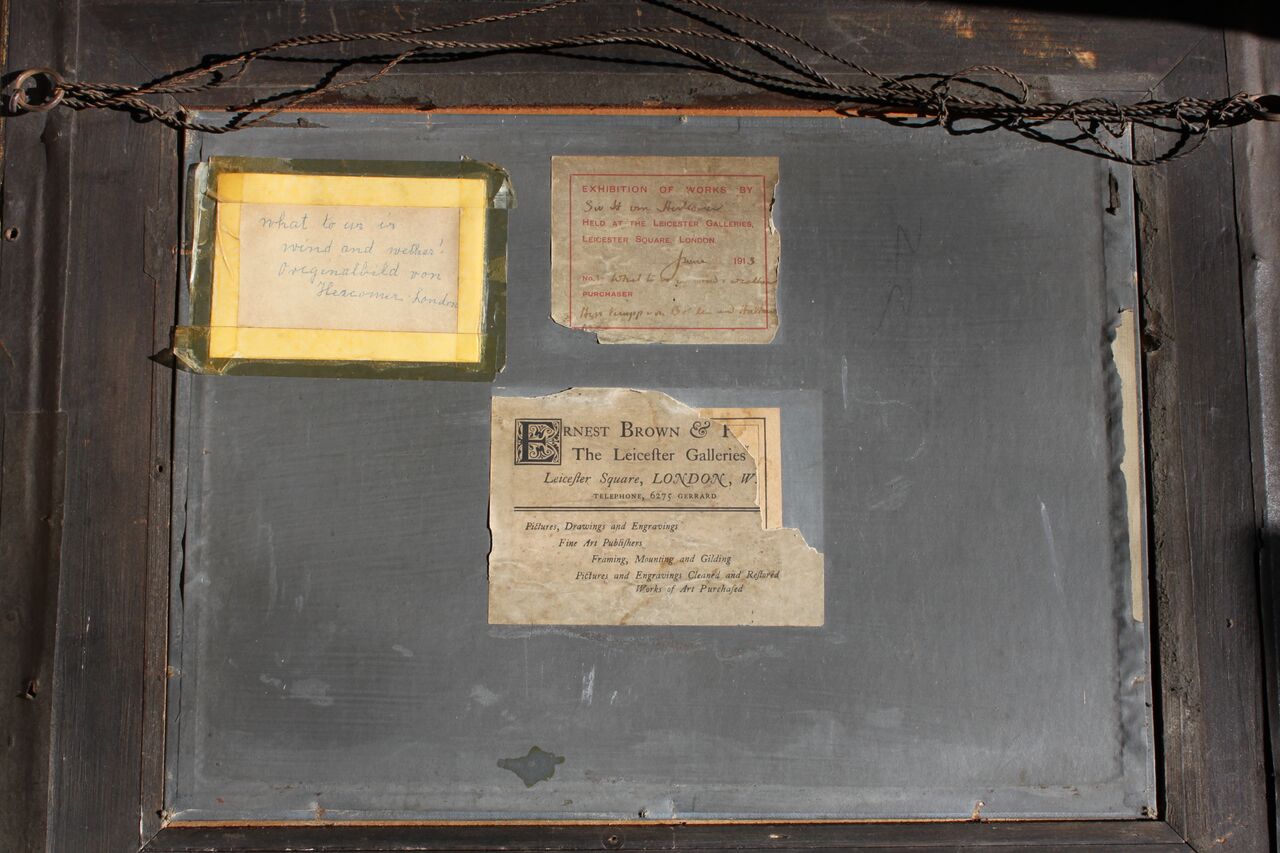 what to us is
wind and wether!
Originalbild von
Herxomer London
EXHIBITION OF WORKS BY
Sir H von Herkomer
HELD AT THE LEICESTER GALLERIES,
LEICESTER SQUARE, LONDON.
June 1913
No. 1 What to us is wind & weather
PURCHASER
Herr Krupp von
ERNEST BROWN &
The Leicester Galleries
Leicester Square, LONDON, W.
TELEPHONE, 6275 GERRARD
Pictures, Drawings and Engravings
Fine Art Publishers
Framing, Mounting and Gilding
Pictures and Engravings Cleaned and Restored
Works of Art Purchased